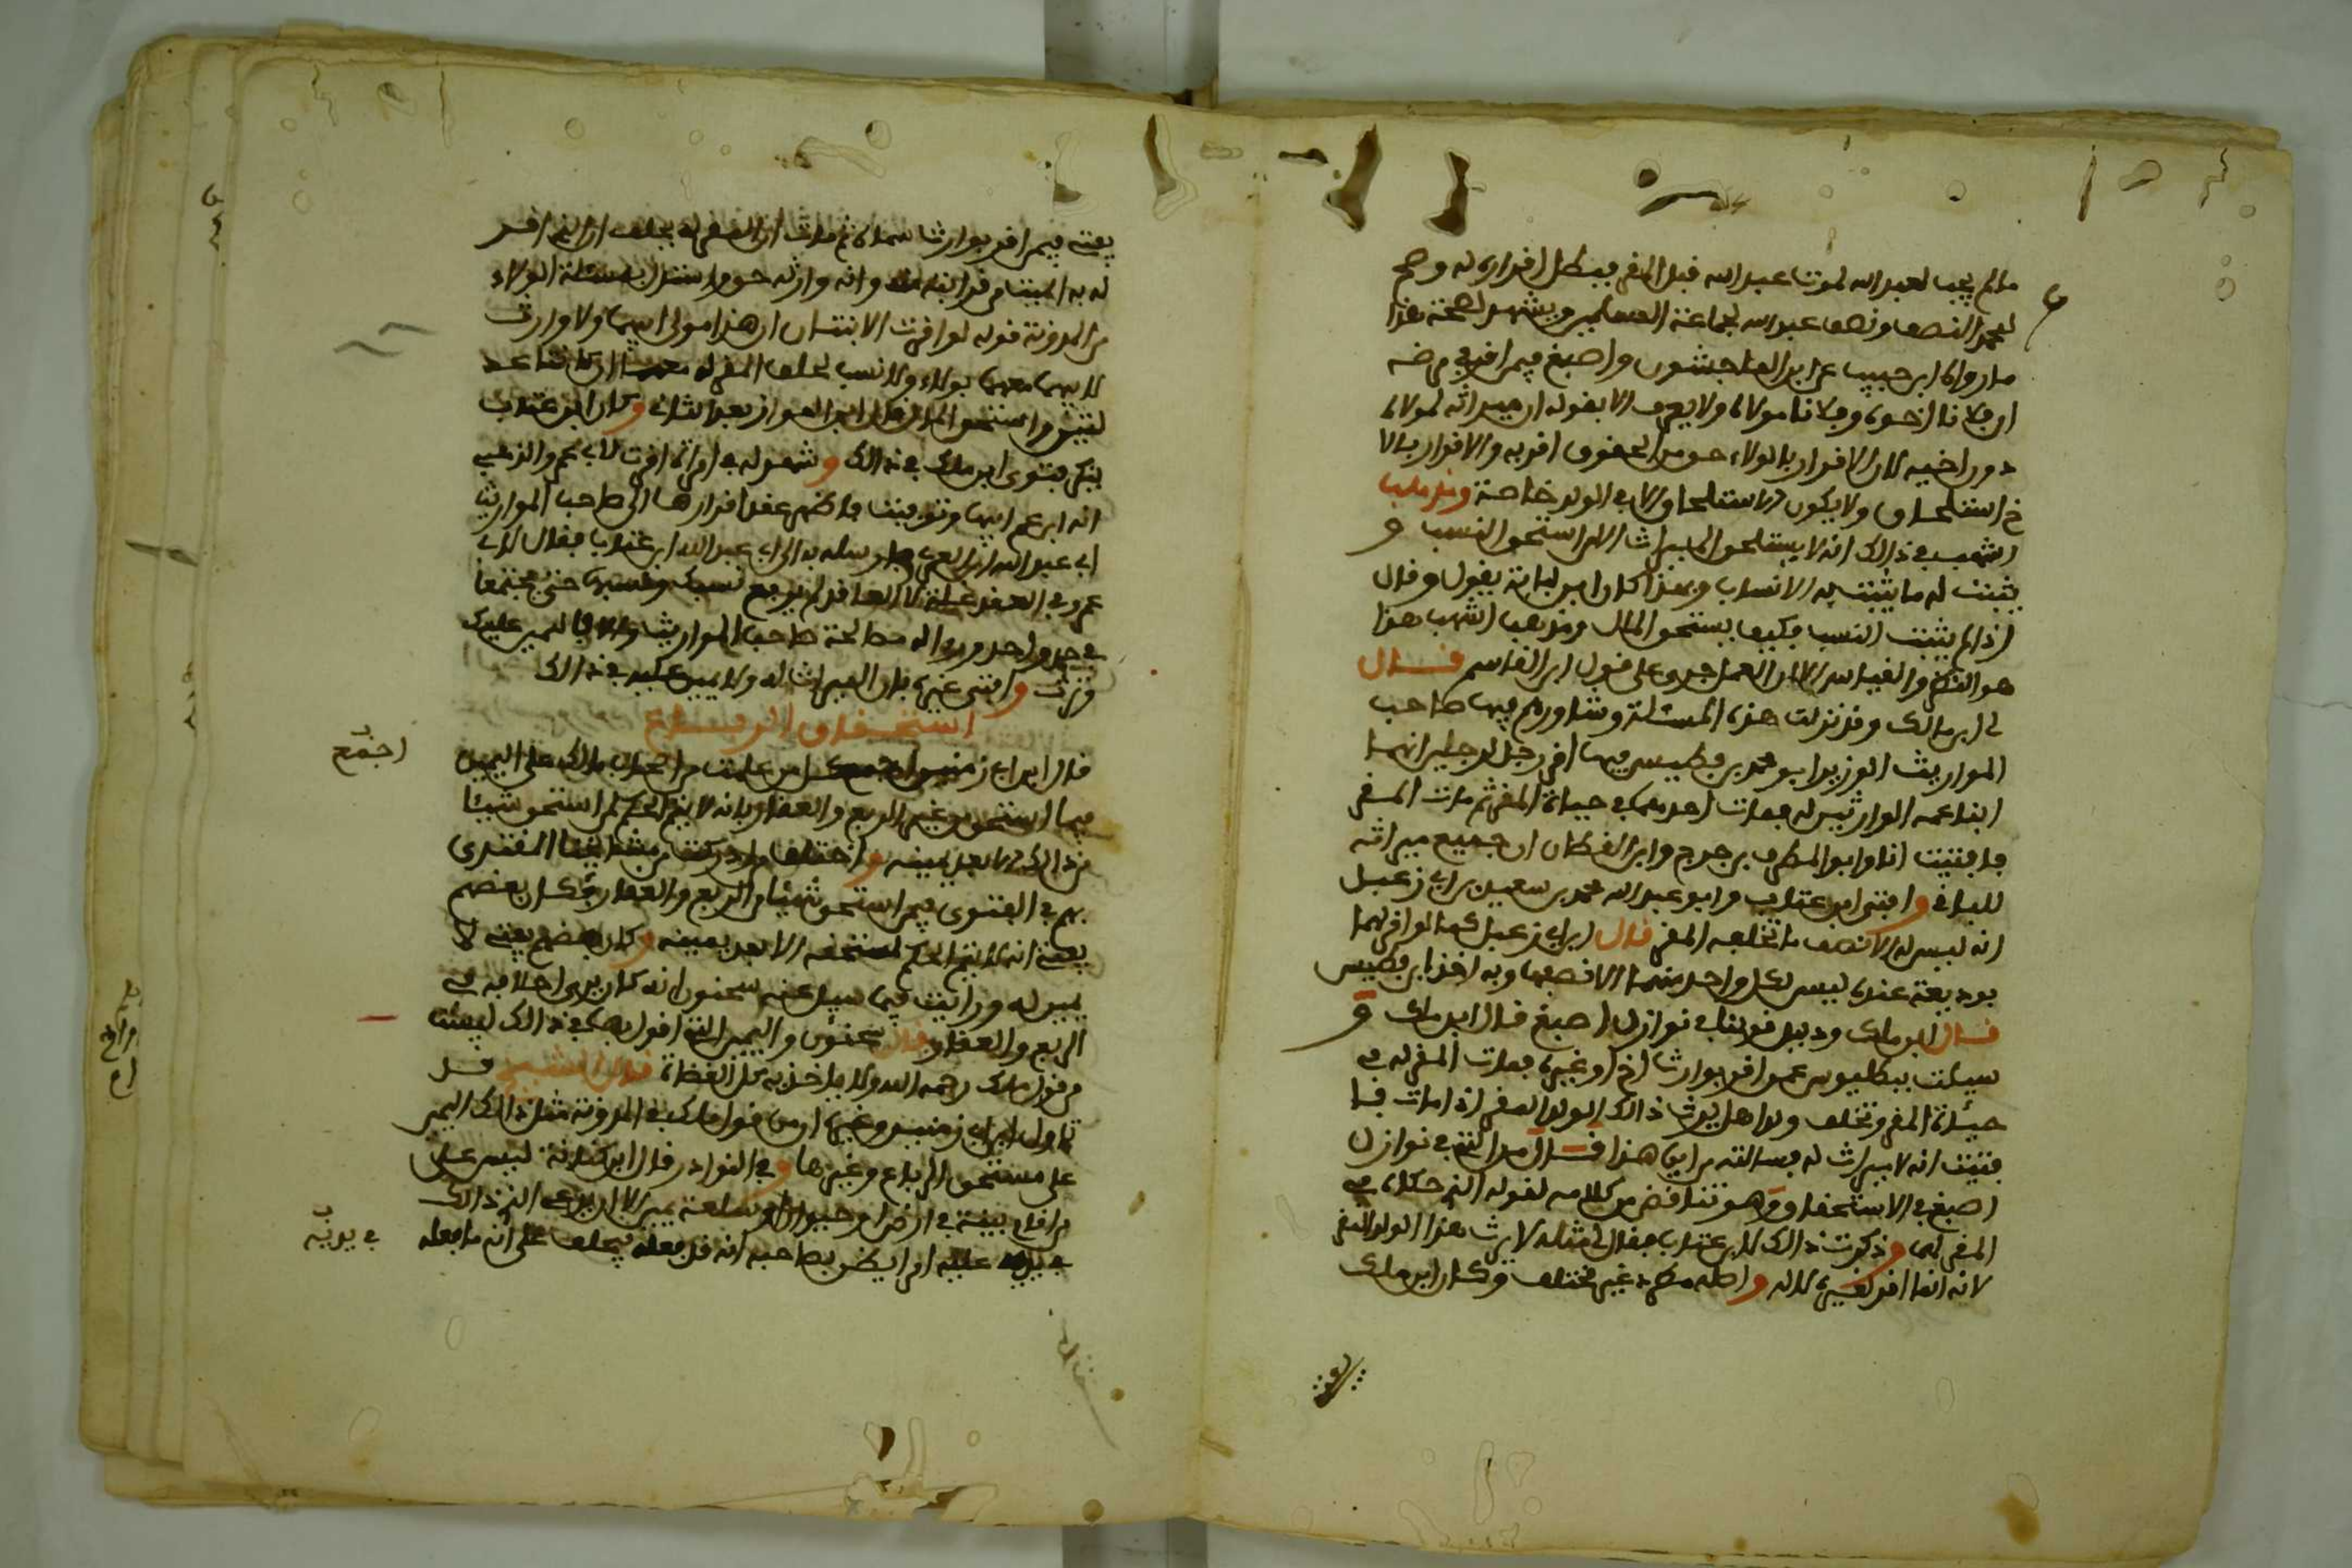 ما لم يجب لعبد الله لموت عبد الله قبل المقر فيبطل اقراره له وصح
لمحمد النصف ونصف عبد الله لجماعة المسلمين ويشهد لصحة هذا
ما رواه ابن حبيب عن ابن الماجشون واصبغ فيمن اقر في مرضه
ان فلانا اخوه وفلانا مولاه ولا يعرف الا بقوله ان ميراثه لمولاه
دون اخيه لان الاقرار بالولاء حق من الحقوق اقر به والاقرار بالا
خ استلحاق ولا يكون الاستلحاق الا في الولد خاصة ومذهب
اشهب في ذالك انه لا يستحق الميراث الا من استحق النسب و
يثبت له ما يثبت به الانساب وبهذا كان ابن لبابة يقول وقال
اذا لم يثبت النسب فكيف يستحق المال ومذهب اشهب هذا
هو النظر والقياس الا ان العمل جرى على قول ابن القاسم قال
لي ابن مالك وقد نزلت هذه المسئلة وشاورهم فيها صاحب
المواريث الوزير ابو محمد بن فطيس فيها اقر رجل لرجلين انهما
ابنا عمه الوارثين له فمات احدهما في حياة المقر ثم مات المقر
فافتيت انا وابو المطرف بن جرج وابن القطان ان جميع ميراثه
للباقي وافتى ابن عتاب وابو عبد الله محمد بن سعيد بن ابي زعبل
انه ليس له الا نصف ما تخلفه المقر قال ابن ابي زعبل كما لو اقر لهما
بوديعة عنده ليس لكل واحد منهما الا نصفها وبه اخذ ابن فطيس
قال ابن مالك ودليل قولنا في نوازل اصبغ قال ابن مالك و
سيلت ببطليوس عمن اقر بوارث اخ او غيره فمات المقر له في
حياة المقر وتخلف ولدا هل يرث ذالك الولد المقر اذا مات فا
فتيت انه لا ميراث له فسالته من اين هذا فقال مسالتة في نوازل
اصبغ في الاستحقاق وهو تناقض من كلامه لقوله الذي حكاه في
المقر لهما وذكرت ذالك لابن عتاب فقال لي مثله لا يرث هذا الولد المقر
لانه انما اقر لغيره لا له واصله مطرد غير مختلف وكان ابن مالك
يفتي فيمن اقر بوارث سماه ثم مات ان المقر له يحلف ان الذي اقر
له به الميت من قرابته منه وانه وارثه حق واستدل بمسئلة الولاء
من المدونة قوله لو اقرت الابنتان ان هذا مولى ابيهما ولا وارث
لابيهما معهما بولاء ولا نسب لحلف المقر له
لفتيق واستحق المال وكان ابن المواز بعد الثاني وكان ابن عتاب
ينكر فتوى ابن مالك في ذالك وشهد له في امراة اقرت لابي محمد والزهر
انه ابن عم ابيها وتوفيت فاظهر عقد اقرارها الى صاحب المواريث
ابي عبد الله ابن العربي وارسله به الى ابي عبد الله ابن عتاب فقال لابي
محمد في العقد علة لا المقر لم يرفع نسبك ونسبها حتى يجتمعا
في جد واحد وروى له مصالحة صاحب المواريث والا فاليمين عليك
وترث وافتى غيره بان الميراث له ولا يمين عليه في ذالك
استحقاق الرباع
قال ابن ابي زمنين اجمع كل من علمت من اصحاب مالك على اليمين
فيما استحق من غير الربع والعقار بانه لا يتم الحكم لمن استحق شيئا
من ذالك الا بعد يمينه واختلف من ادركت من مشايخنا المقتدى
بهم في الفتوى فيمن استحق شيئا من الربع والعقار فكان بعضهم
يفتي انه لا يتم الحكم لمستحقه الا بعد يمينه وكان بعضهم يفتي لا
يمين له ورايت فيما سيل عنه سحنون انه كان يرى احلافه في
الربع والعقار قال سحنون واليمين الذي اقول بها في ذالك ليست
من قول مالك رحمه الله ولا ياخذ به كل القضاة قال الشيخ قد
تاول ابن ابي زمنين وغيره ان من قول مالك في المدونة مثل ذالك اليمين
على مستحق الرباع وغيرها وفي النوادر قال ابن كنانة ليس على
من اقام بينة في ارض او حيوان او سلعة يمين الا ان يدعي الذي ذالك
في يديه عليه امرا يظن بصاحبه انه قد فعله فيحلف على انه ما فعله
اجتمع
في يديه